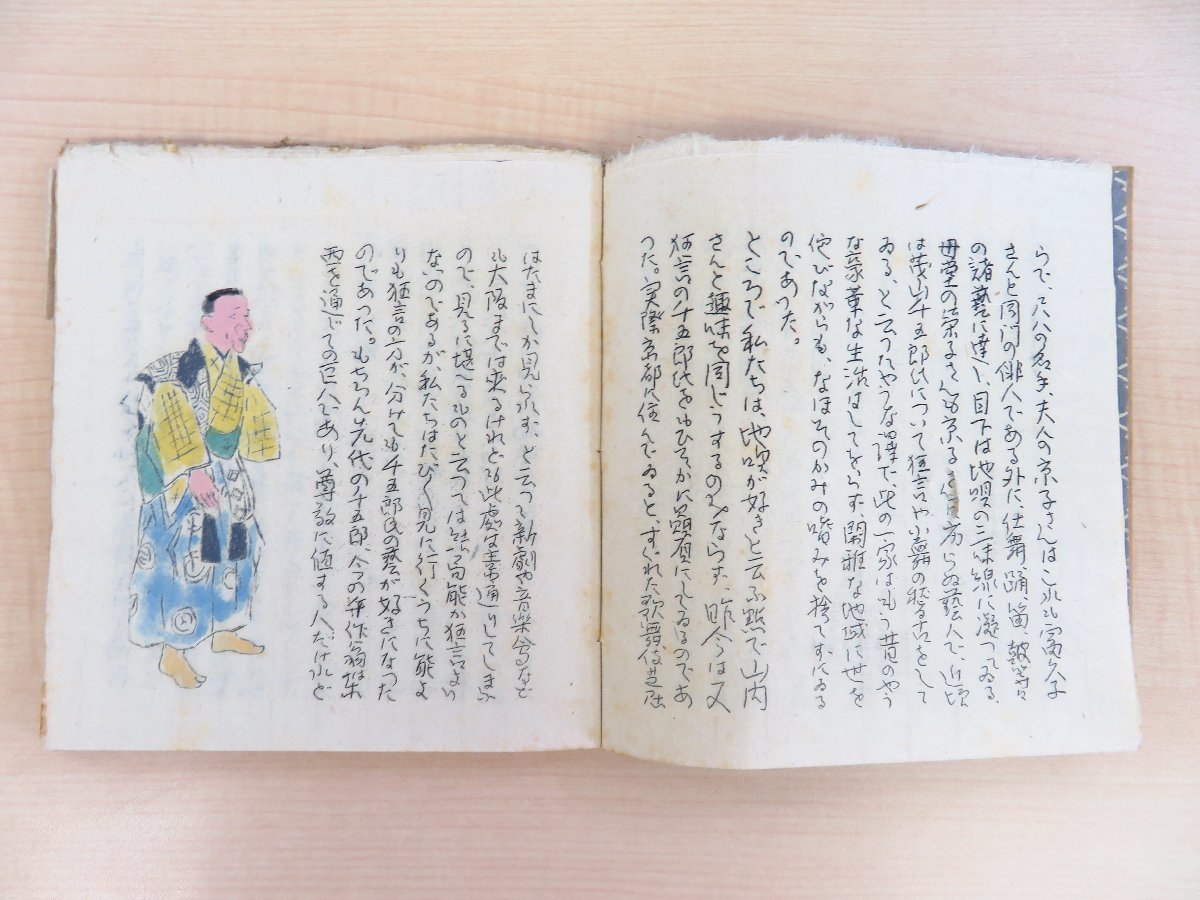 らで、尺八の名手、夫人の京子さんはこれも富久子
さんと同門の俳人である外に、仕舞、踊、笛、鼓等々
の諸藝に達し、目下は地唄の三味線に凝つてゐる、
母堂の榮子さんも京子さんに劣らぬ藝人で、近頃
は茂山千五郎氏について狂言や小舞の稽古をして
ゐる、と云つたやうな譯で、此の一家はもう昔のやう
な豪華な生活はしてをらず、閑雅な地域に世を
侘びながらも、なほそのかみの嗜みを捨てずにゐる
のであつた。
ところで私たちは、地唄が好きと云ふ點で山内
さんと趣味を同じうするのみならず、昨今は又
狂言の千五郎氏をもひそかに贔屓にしてゐるのであ
つた。実際京都に住んでゐると、すぐれた歌舞伎芝居
はたまにしか見られず、と云つて新劇や音樂會など
も大阪までは來るけれども此處は素通りしてしまふ
ので、見るに堪へるものと云つては結局能か狂言より
ないのであるが、私たちはたび〳〵見に行くうちに能よ
りも狂言の方が、分けても千五郎氏の藝が好きになつた
のであつた。もちろん先代の千五郎、今の弥作翁は東
西を通じての巨人であり、尊敬に値する人だけれど